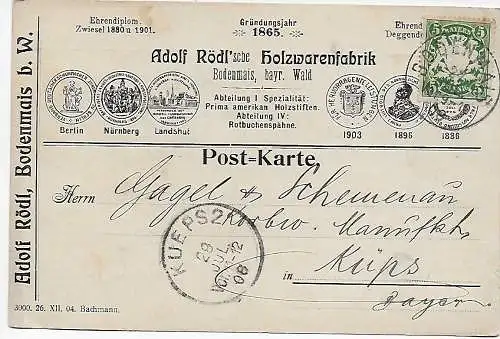 Ehrendiplom.
Zwiesel 1880 u 1901.
Gründungsjahr
1865.
Ehrend
Deggendo
Adolf Rödl'sche Holzwarenfabrik
Bodenmais, bayr. Wald
Abteilung I Spezialität:
Prima amerikan. Holzstiften.
Abteilung IV:
Rotbuchenspähne.
Berlin Nürnberg Landshut
1903 1896 1886
5 5
Post-Karte.
Herrn Gagel & Schemenau
Korbw. Manufkt.
in Küps
Bayer
KUEPS 2
29
JUL
08
Adolf Rödl, Bodenmais b. W.
3000. 26. XII. 04. Bachmann.